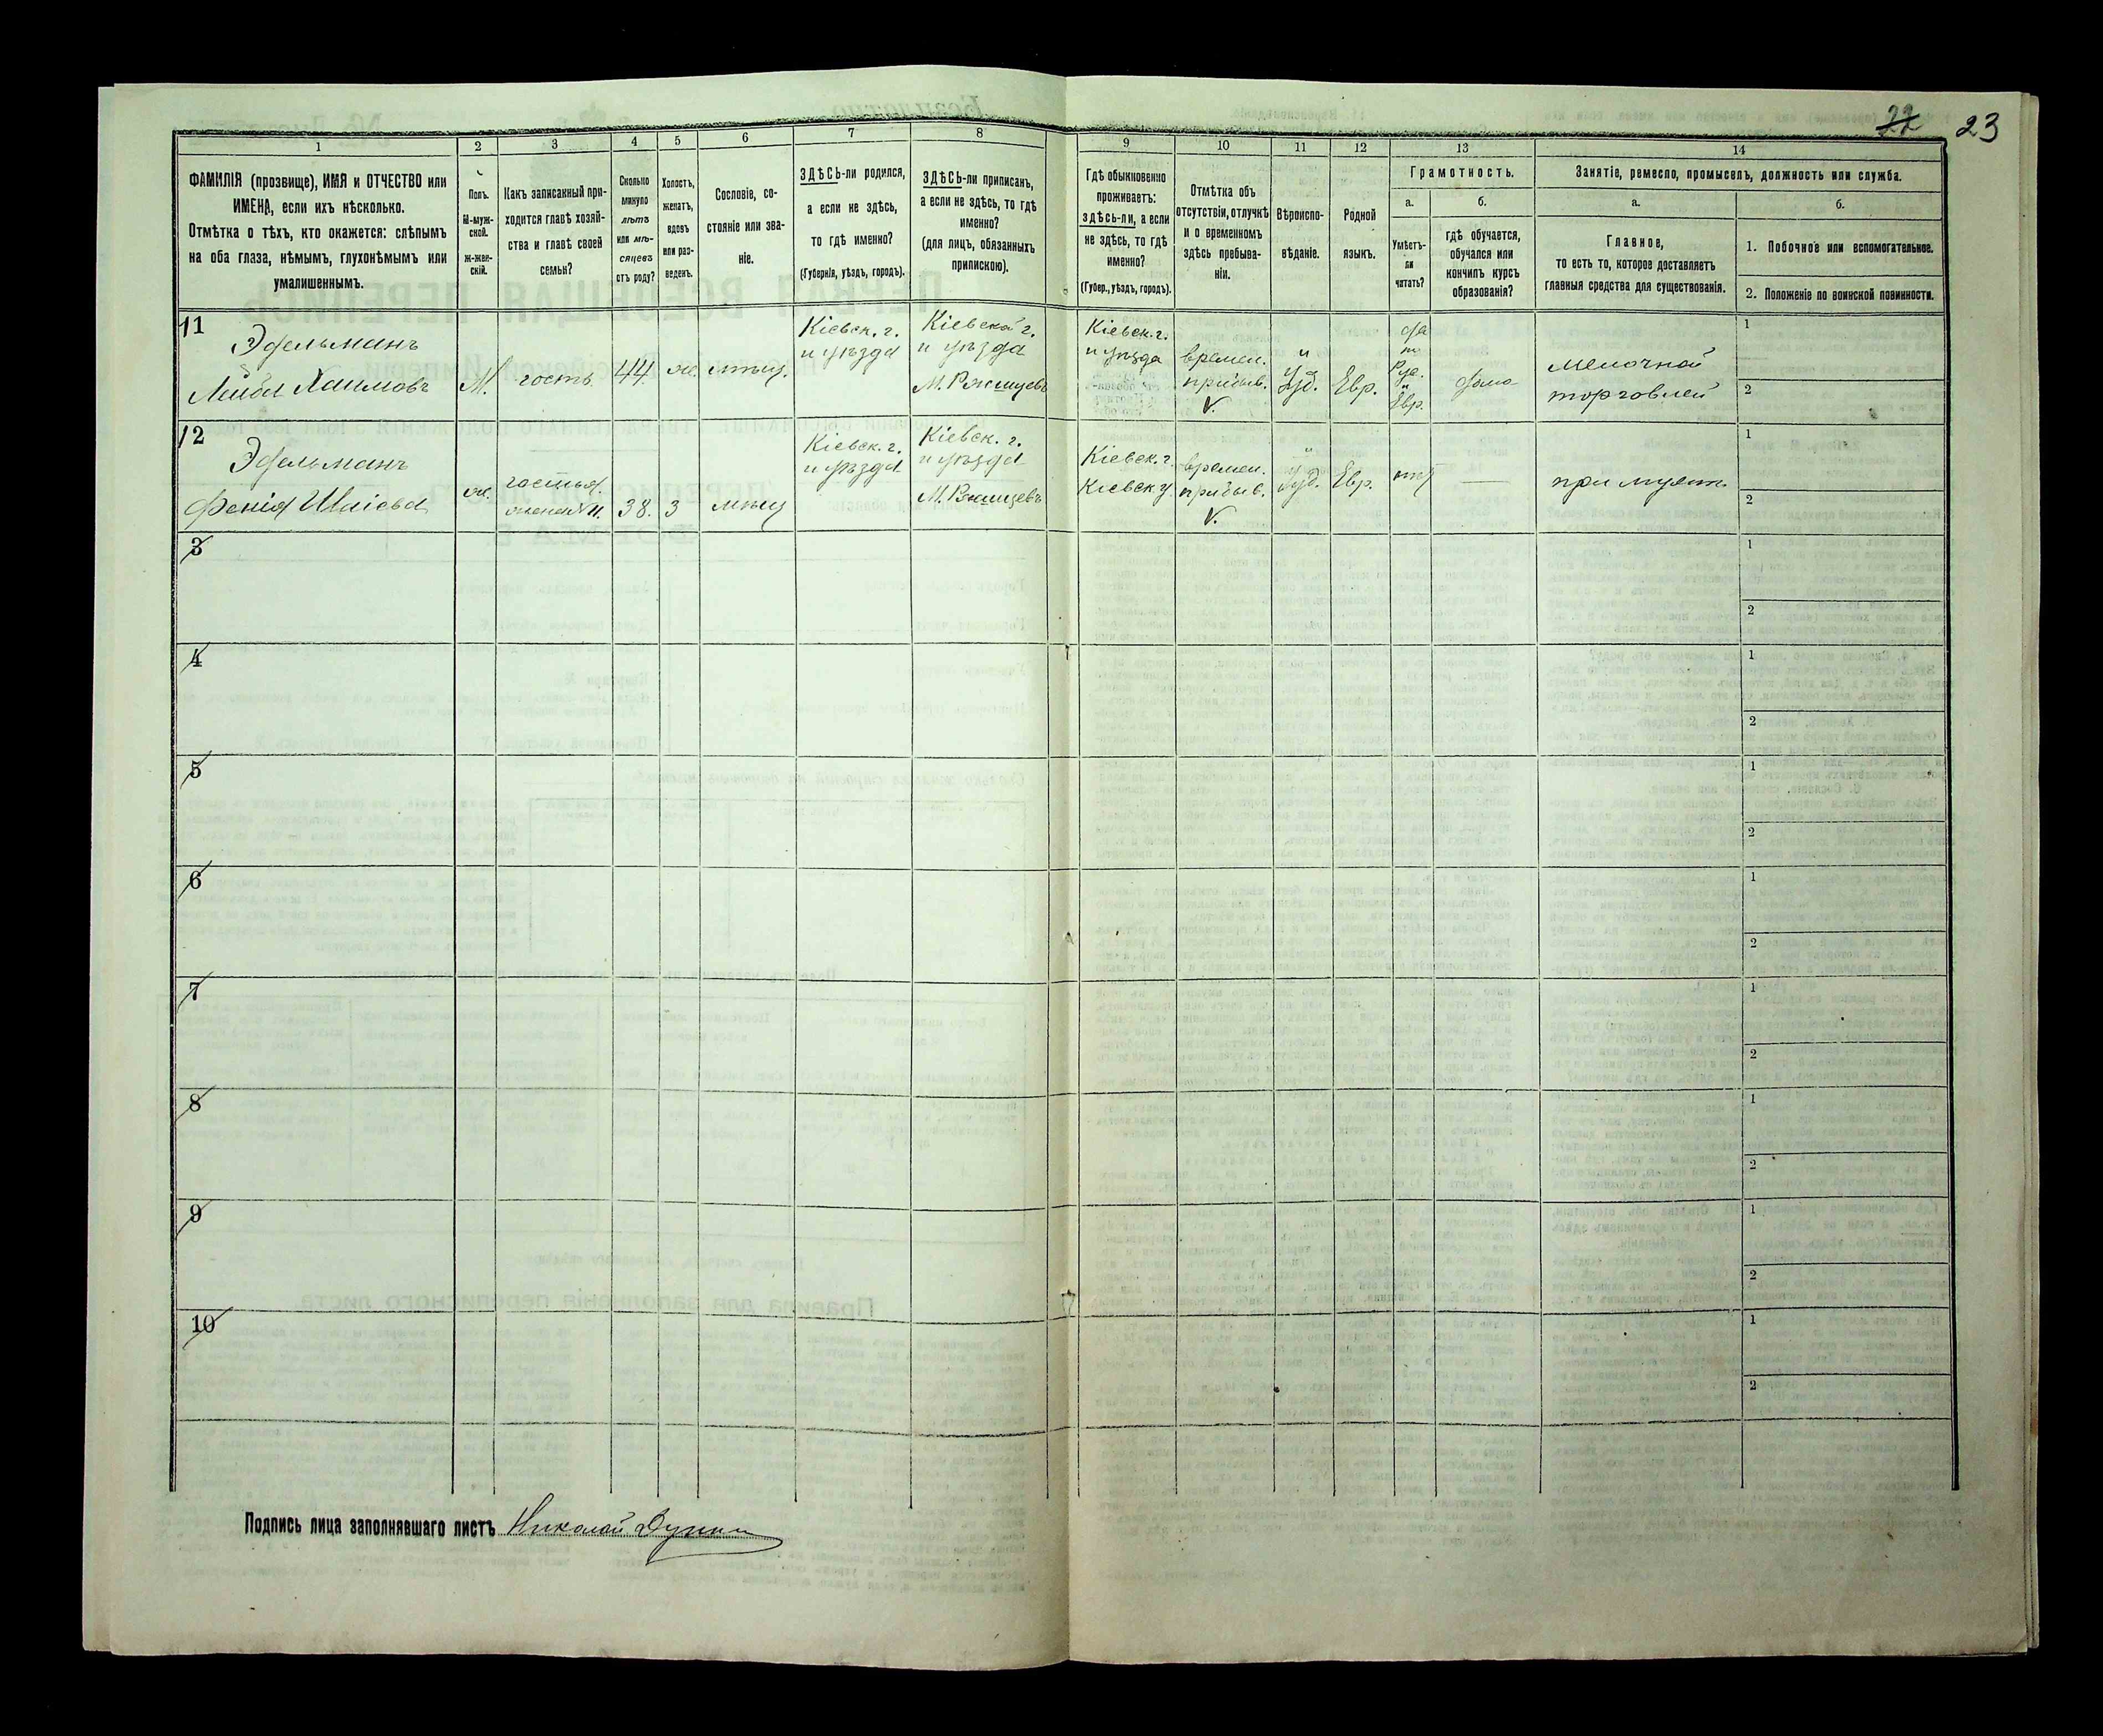 22 23
1 2 3 4 5 6 7 8 9 10 11 12 13 14
ФАМИЛІЯ (прозвище), ИМЯ и ОТЧЕСТВО или
ИМЕНА, если ихъ нѣсколько.
Отмѣтка о тѣхъ, кто окажется: слѣпымъ
на оба глаза, нѣмымъ, глухонѣмымъ или
умалишеннымъ.
Полъ.
М-муж-
ской.
Ж-жен-
скій.
Какъ записанный при-
ходится главѣ хозяй-
ства и главѣ своей
семьи?
Сколько
минуло
лѣтъ
или мѣ-
сяцевъ
отъ роду?
Холостъ,
женатъ,
вдовъ
или раз-
веденъ.
Сословіе, со-
стояніе или зва-
ніе.
ЗДѢСЬ-ли родился,
а если не здѣсь,
то гдѣ именно?
(Губернія, уѣздъ, городъ).
ЗДѢСЬ-ли приписанъ,
а если не здѣсь, то гдѣ
именно?
(для лицъ, обязанныхъ
припискою).
Гдѣ обыкновенно
проживаетъ:
здѣсь-ли, а если
не здѣсь, то гдѣ
именно?
(Губер., уѣздъ, городъ).
Отмѣтка объ
отсутствіи, отлучкѣ
и о временномъ
здѣсь пребыва-
ніи.
Вѣроиспо-
вѣданіе.
Родной
языкъ.
Грамотность.
а.
Умѣетъ-
ли
читать?
б.
гдѣ обучается,
обучался или
кончилъ курсъ
образованія?
Занятіе, ремесло, промыселъ, должность или служба.
а.
Главное,
то есть то, которое доставляетъ
главныя средства для существованія.
б.
1. Побочное или вспомогательное.
2. Положеніе по воинской повинности.
11
Эдельманъ
Лейба Хаимовъ
М.
гость
44
ж.
мѣщ.
Кіевск. г.
и уѣзда
Кіевской г.
и уѣзда
М. Ржищевъ
Кіевск. г.
и уѣзда
времен.
прибыв.
V.
Іуд.
Евр.
да
по
Рус.
и
Евр.
дома
мелочной
торговлей
1
2
12
Эдельманъ
Фенія
ж.
гостья.
жена № 11.
38.
3
мѣщ
Кіевск. г.
и уѣзда
Кіевск. г.
и уѣзда
М. Ржищевъ
Кіевск. г.
Кіевск у.
времен.
прибыв.
V.
Іуд.
Евр.
нѣт
при мужѣ
1
2
3
1
2
4
1
2
5
1
2
6
1
2
7
1
2
8
1
2
9
1
2
10
1
2
Подпись лица заполнявшаго листъ Николай